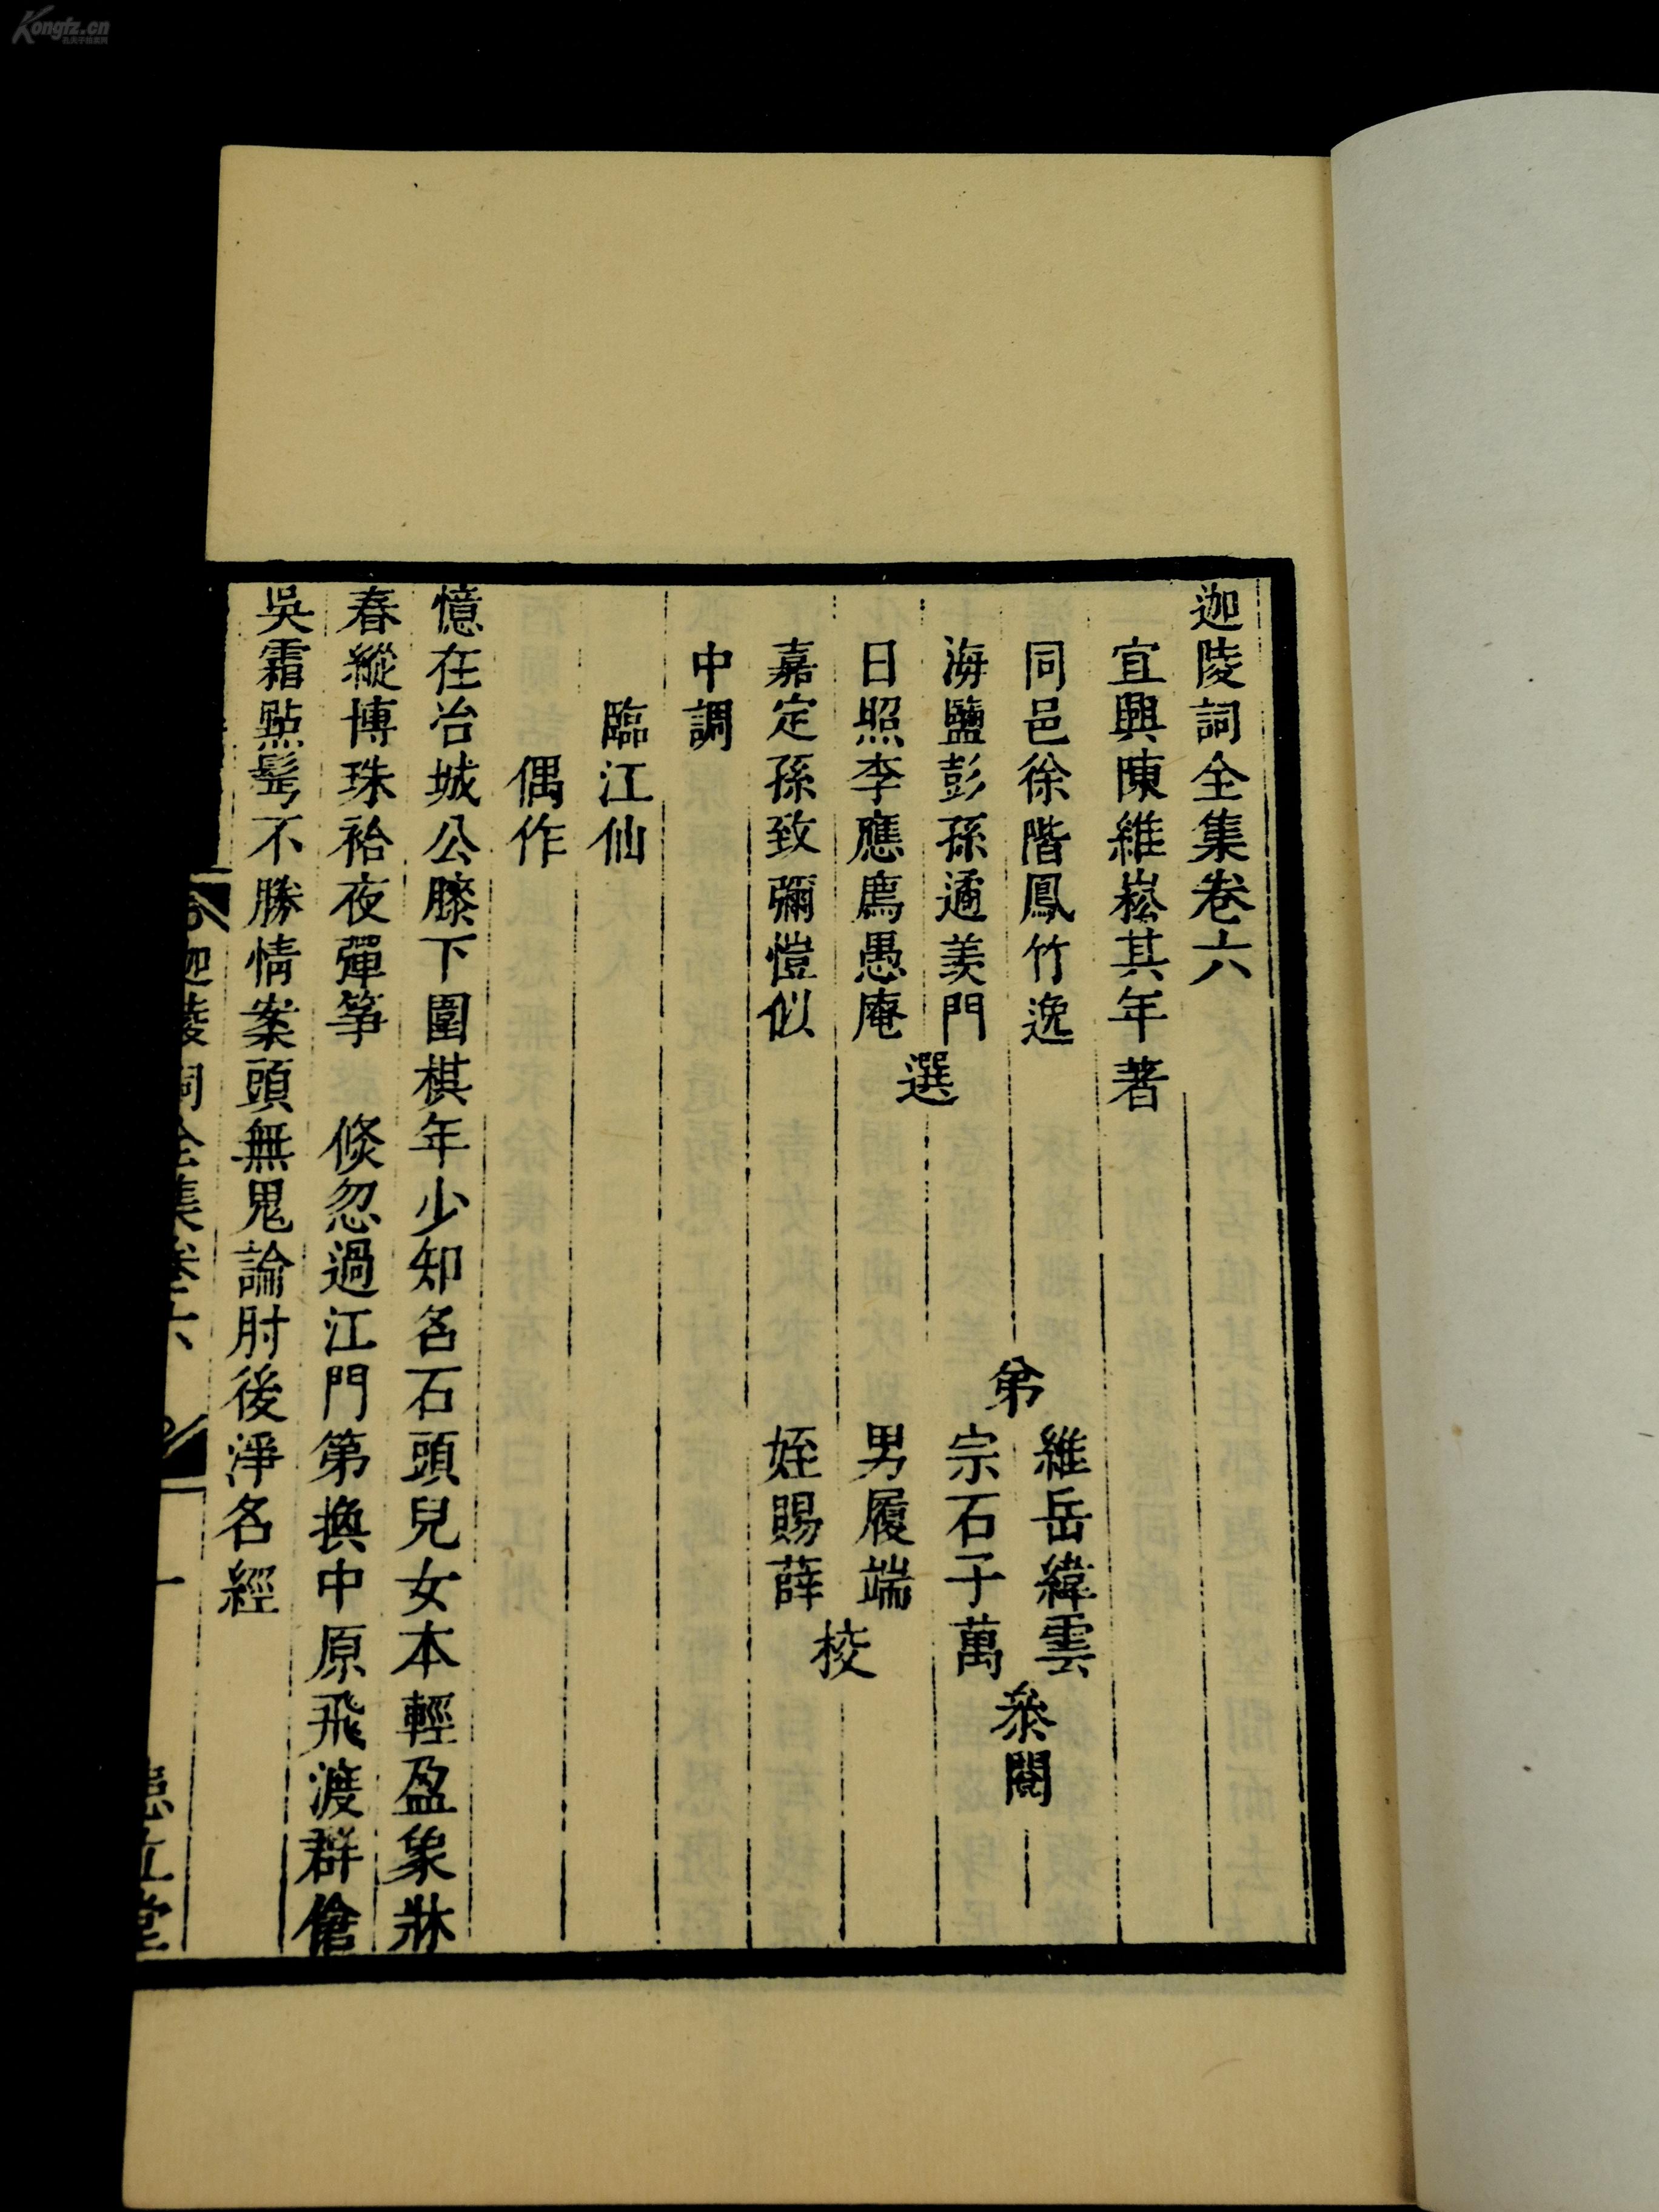 迦陵詞全集卷六
宜興陳維崧其年著
同邑徐喈鳳竹逸
海鹽彭孫遹羡門
日照李應廌愚庵
嘉定孫致彌愷似
選
弟
維岳緯雲
宗石子萬
叅閱
男履端
姪賜薛
校
中調
臨江仙
偶作
憶在冶城公膝下圍棋年少知名石頭兒女本輕盈象牀
春縱博珠袷夜彈箏　倐忽過江門第換中原飛渡群傖
吳霜點鬂不勝情案頭無鬼論肘後淨名經
迦陵詞全集卷六
一
患立堂
Kongfz.cn
孔夫子旧书网